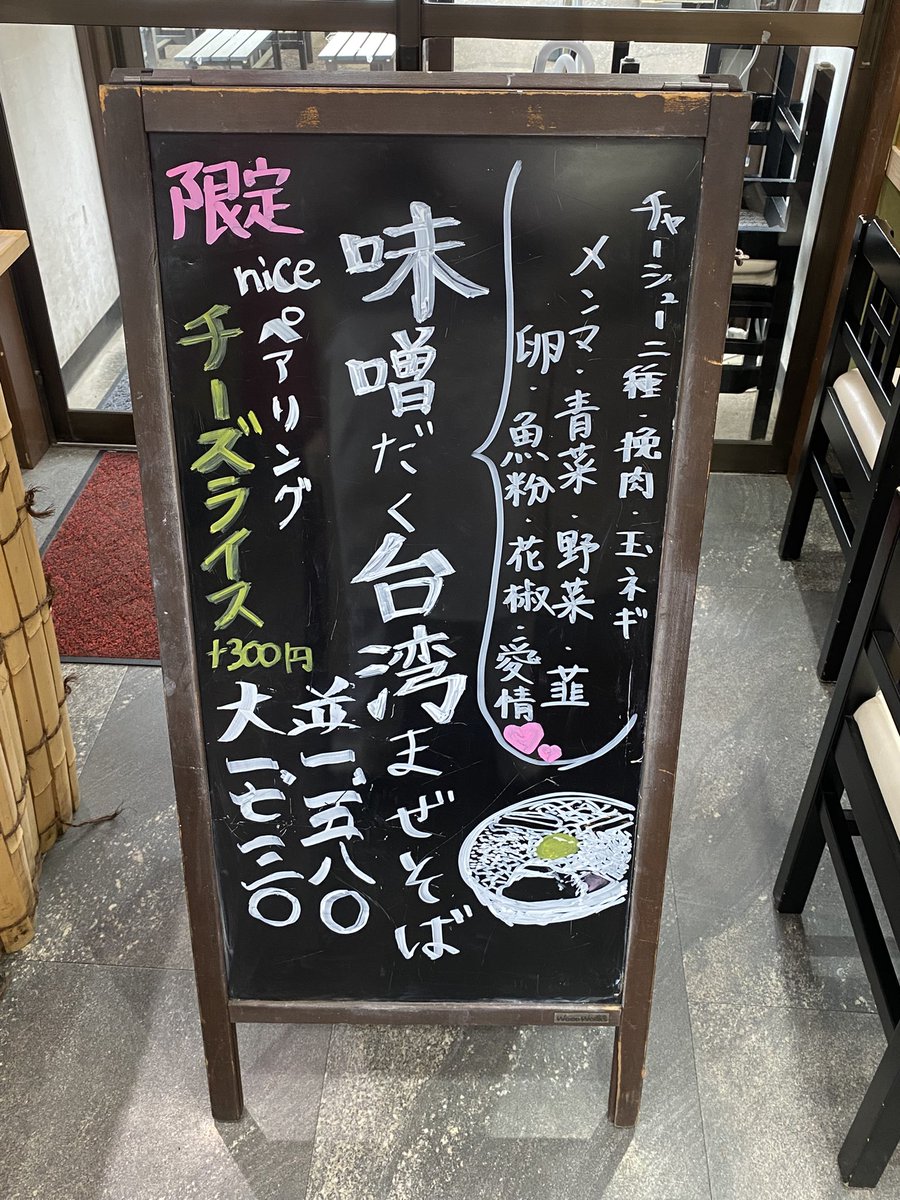 限定
チャーシュー二種・挽肉・玉ネギ
メンマ・青菜・野菜・韮
卵・魚粉・花椒・愛情
味噌だく台湾まぜそば
niceペアリング
チーズライス
+300円
並一、五八〇
大一、七三〇